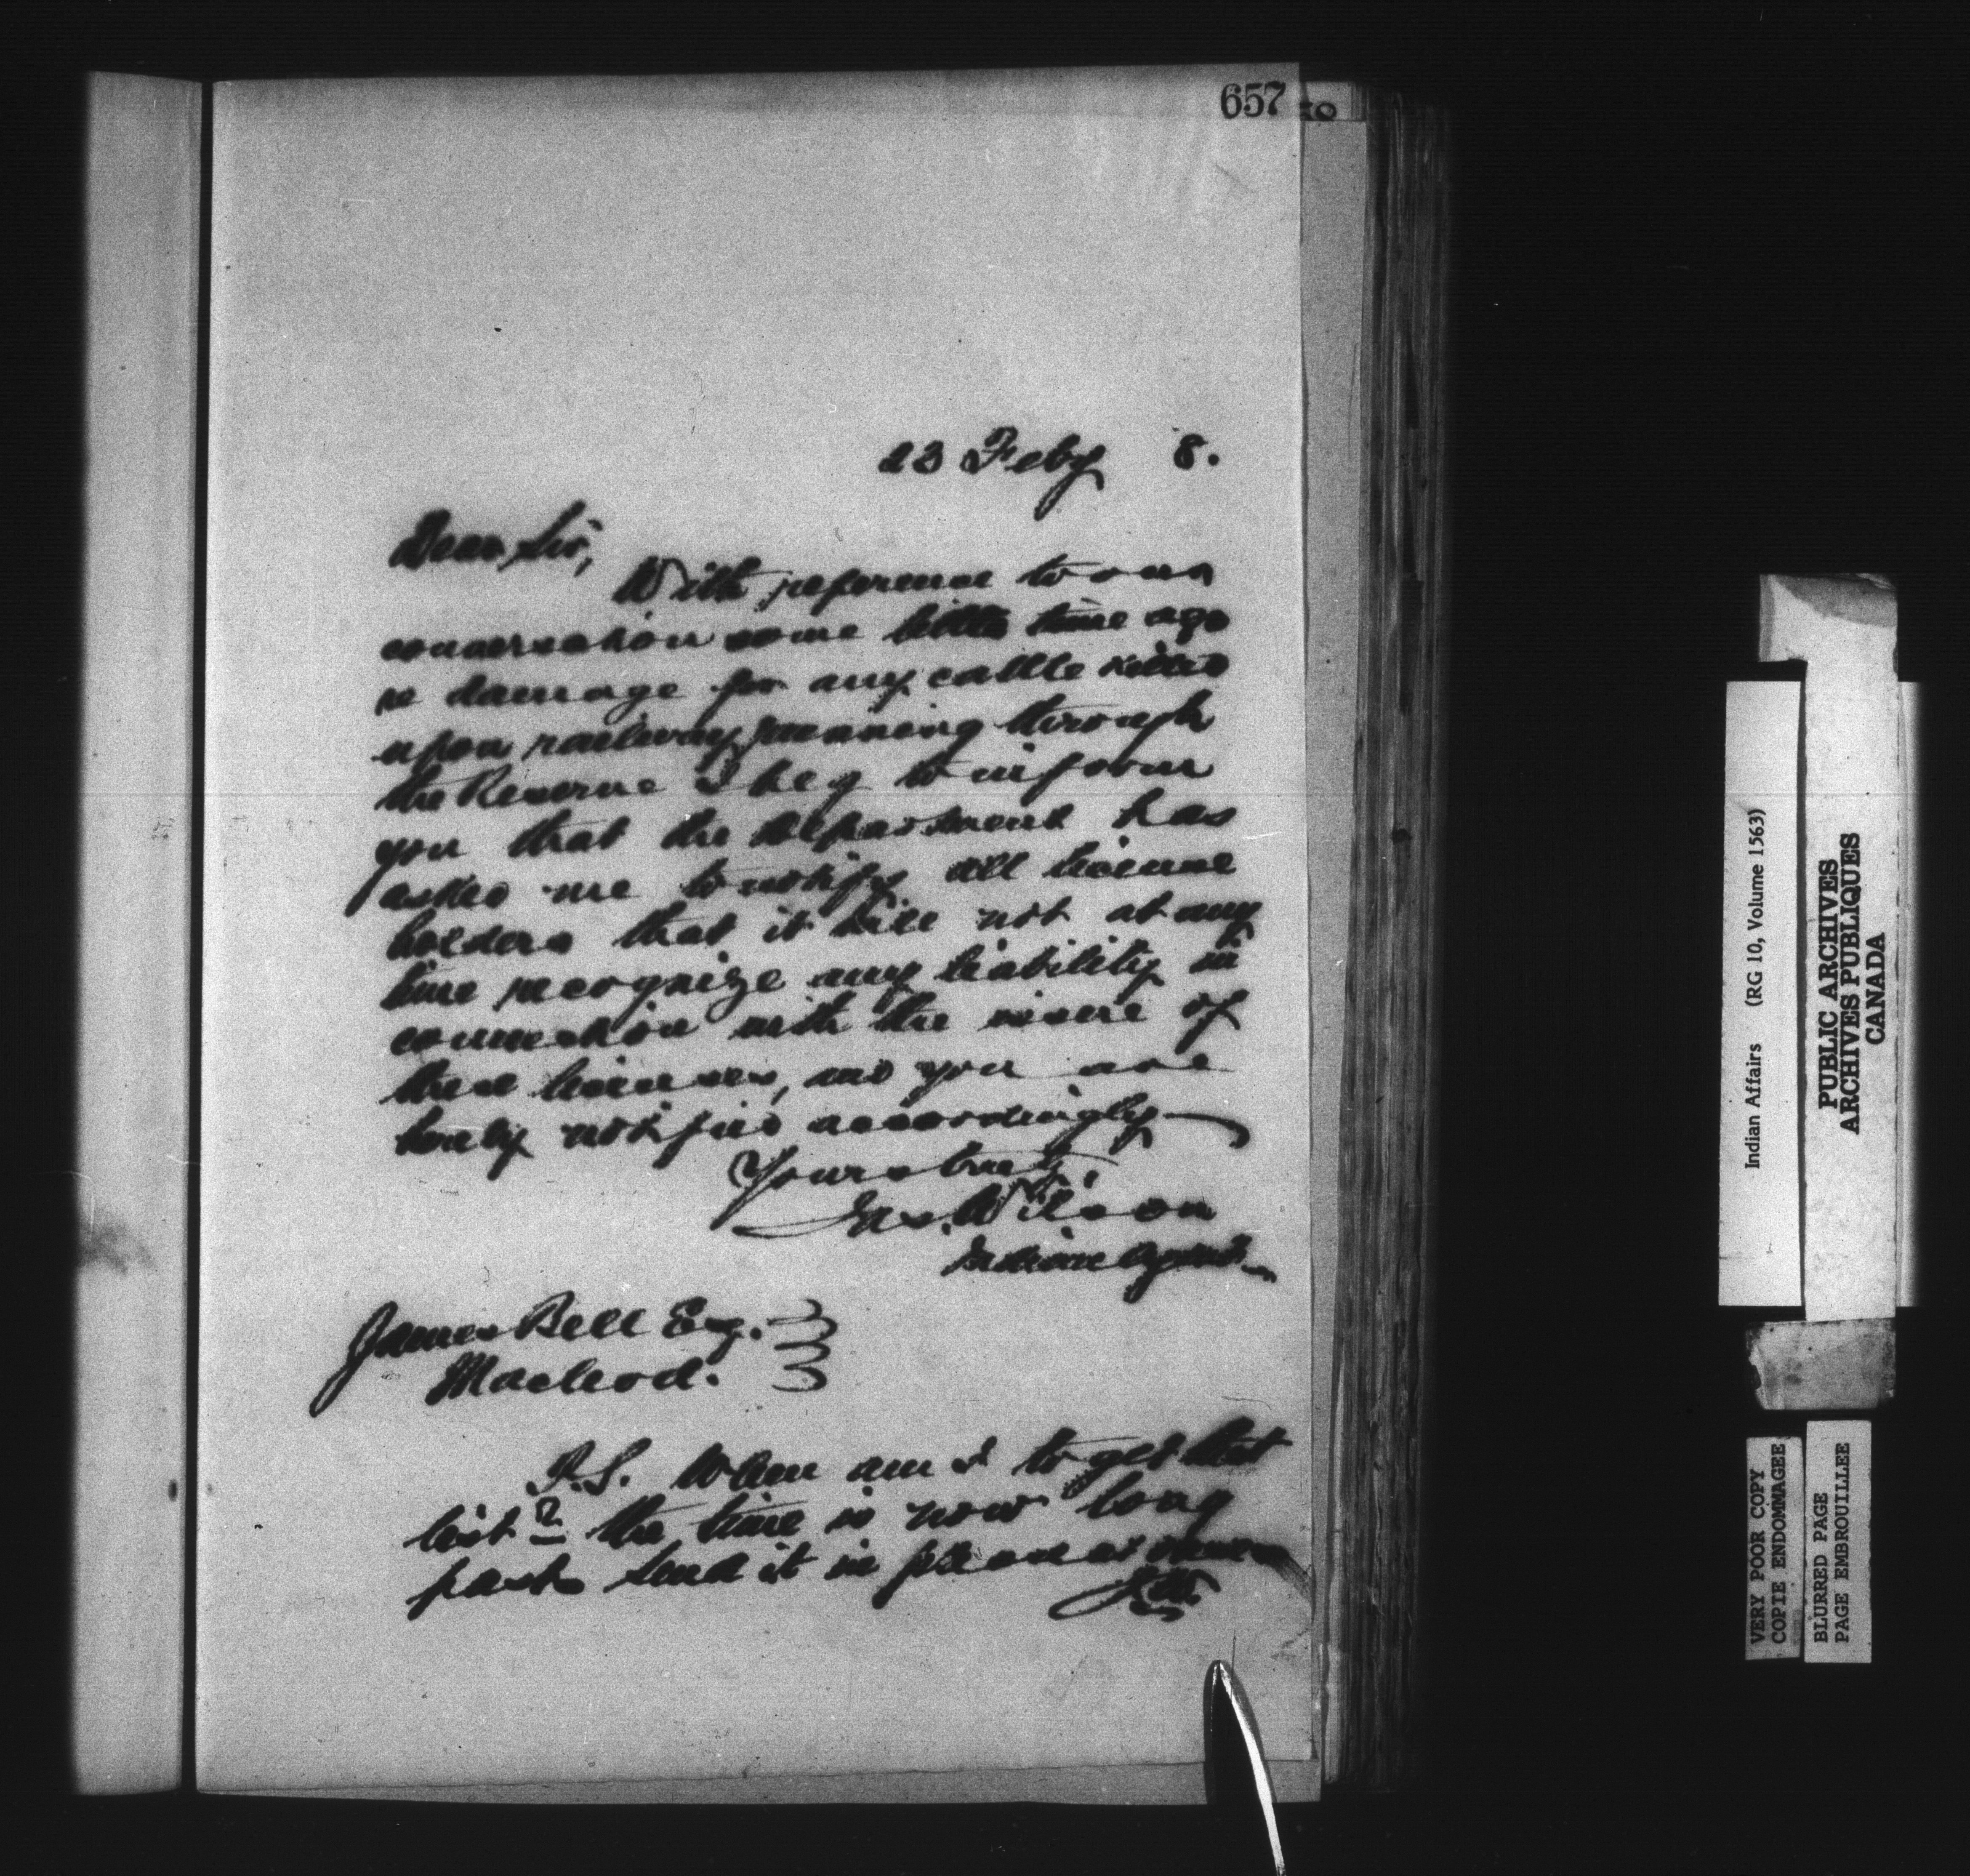 657
23 Feby 8.
Dear Sir,
With reference to our
conversation some little time ago
re damage for any cattle killed
upon railway running through
the Reserve I beg to inform
you that the Department has
asked me to notify all license
holders that it will not at any
time recognize any liability in
connection with the issue of
these licenses, and you are
hereby notified accordingly
Yours truly
Jas. Wilson
Indian Agent
James Bell Esq.
Macleod.
P.S. When am I to get that
list? the time is now long
past send it in please at once
J.W.
Indian Affairs (RG 10, Volume 1563)
PUBLIC ARCHIVES
ARCHIVES PUBLIQUES
CANADA
VERY POOR COPY
COPIE ENDOMMAGEE
BLURRED PAGE
PAGE EMBROUILLEE